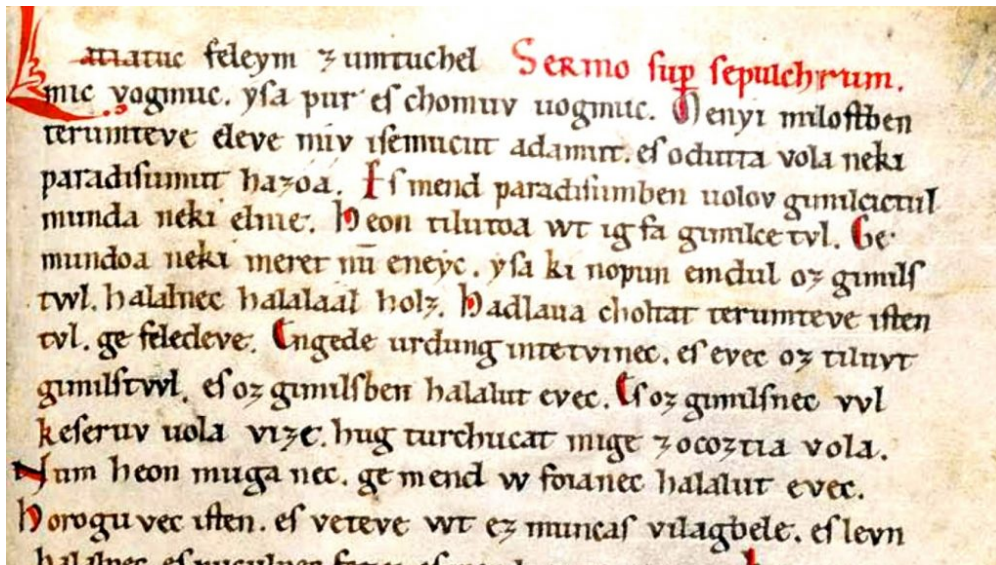 Latiatuc feleym zumtuchel Sermo sup sepulchrum.
mic vogmuc. yſa pur eſ chomuv uogmuc. Menyi miloſtben
terumteve eleve miv iſemucut adamut. eſ odutta vola neki
paradiſumut hazoa. Eſ mend paradiſumben uolov gimilcictul
munda neki elnie. Heon tilutoa wt ig fa gimilce tvl. Ge
mundoa neki meret nū eneyc. yſa ki nopun emdul oz gimilſ
twl. halalnec halalaal holz. Hadlaua choltat terumteve iſten
tvl. ge feledeve. Engede urdung intetvinec. eſ evec oz tiluvt
gimilſtwl. eſ oz gimilſben halalut evec. Eſ oz gimilſnec vvl
keſeruv uola vize. hug turchucat mige zocoztia vola.
Num heon muga nec. ge mend w foianec halalut evec.
Horogu vec iſten. eſ veteve wt ez muncaſ vilagbele. eſ levn